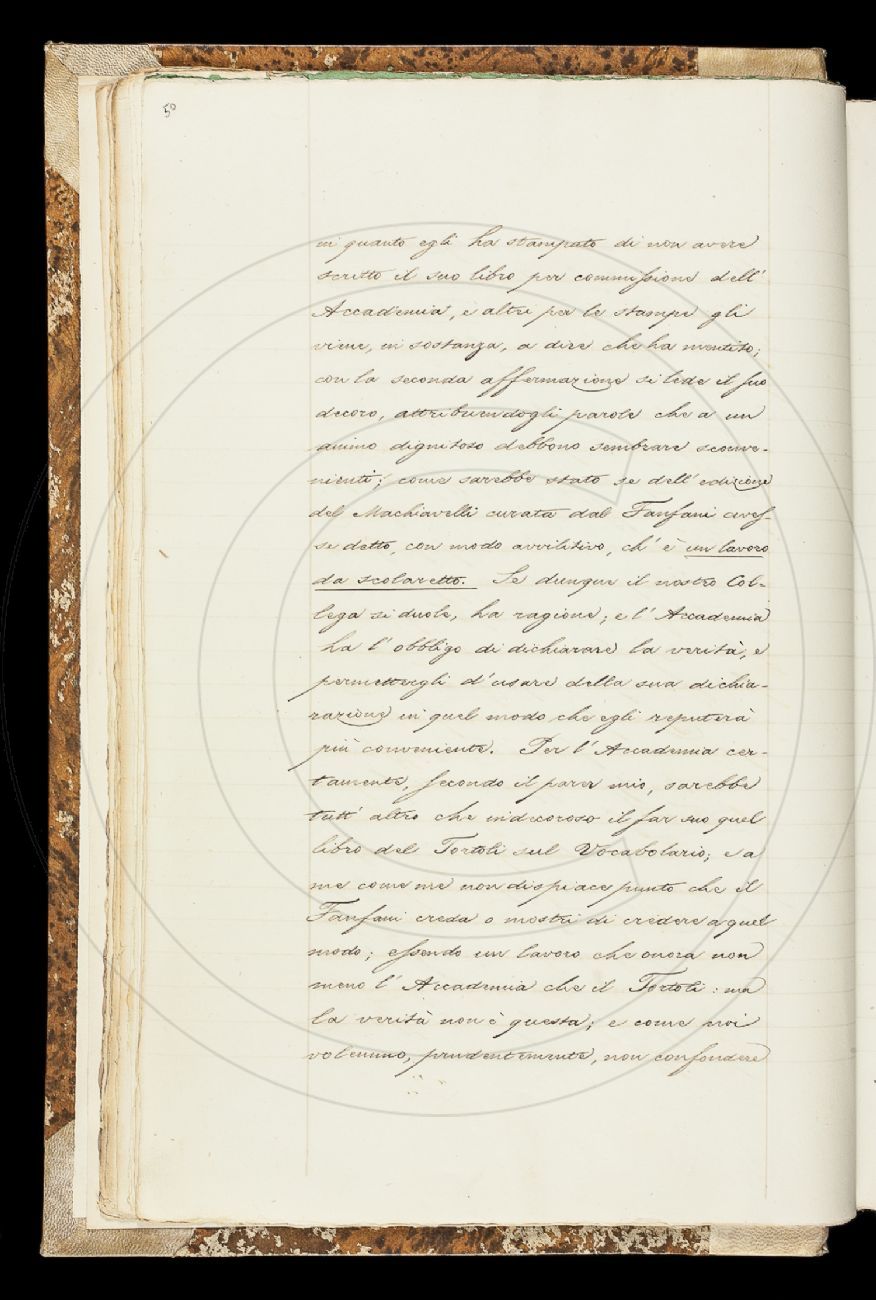 50
in quanto egli ha stampato di non avere
scritto il suo libro per commissione dell'
Accademia, e altri per le stampe gli
viene, in sostanza, a dire che ha mentito;
con la seconda affermazione si lede il suo
decoro, attribuendogli parole che a un
animo dignitoso debbono sembrare sconve-
nienti; come sarebbe stato se dell'edizione
del Machiavelli curata dal Fanfani aves-
se detto, con modo avvilitivo, ch'è un lavoro
da scolaretto. Se dunque il nostro Col-
lega si duole, ha ragione; e l'Accademia
ha l'obbligo di dichiarare la verità, e
permettergli d'usare della sua dichia-
razione in quel modo che egli reputerà
più conveniente. Per l'Accademia cer-
tamente, secondo il parer mio, sarebbe
tutt'altro che indecoroso il far suo quel
libro del Tortoli sul Vocabolario; e a
me come me non dispiace punto che il
Fanfani creda o mostri di credere a quel
modo; essendo un lavoro che onora non
meno l'Accademia che il Tortoli: ma
la verità non è questa; e come noi
volemmo, prudentemente, non confondere